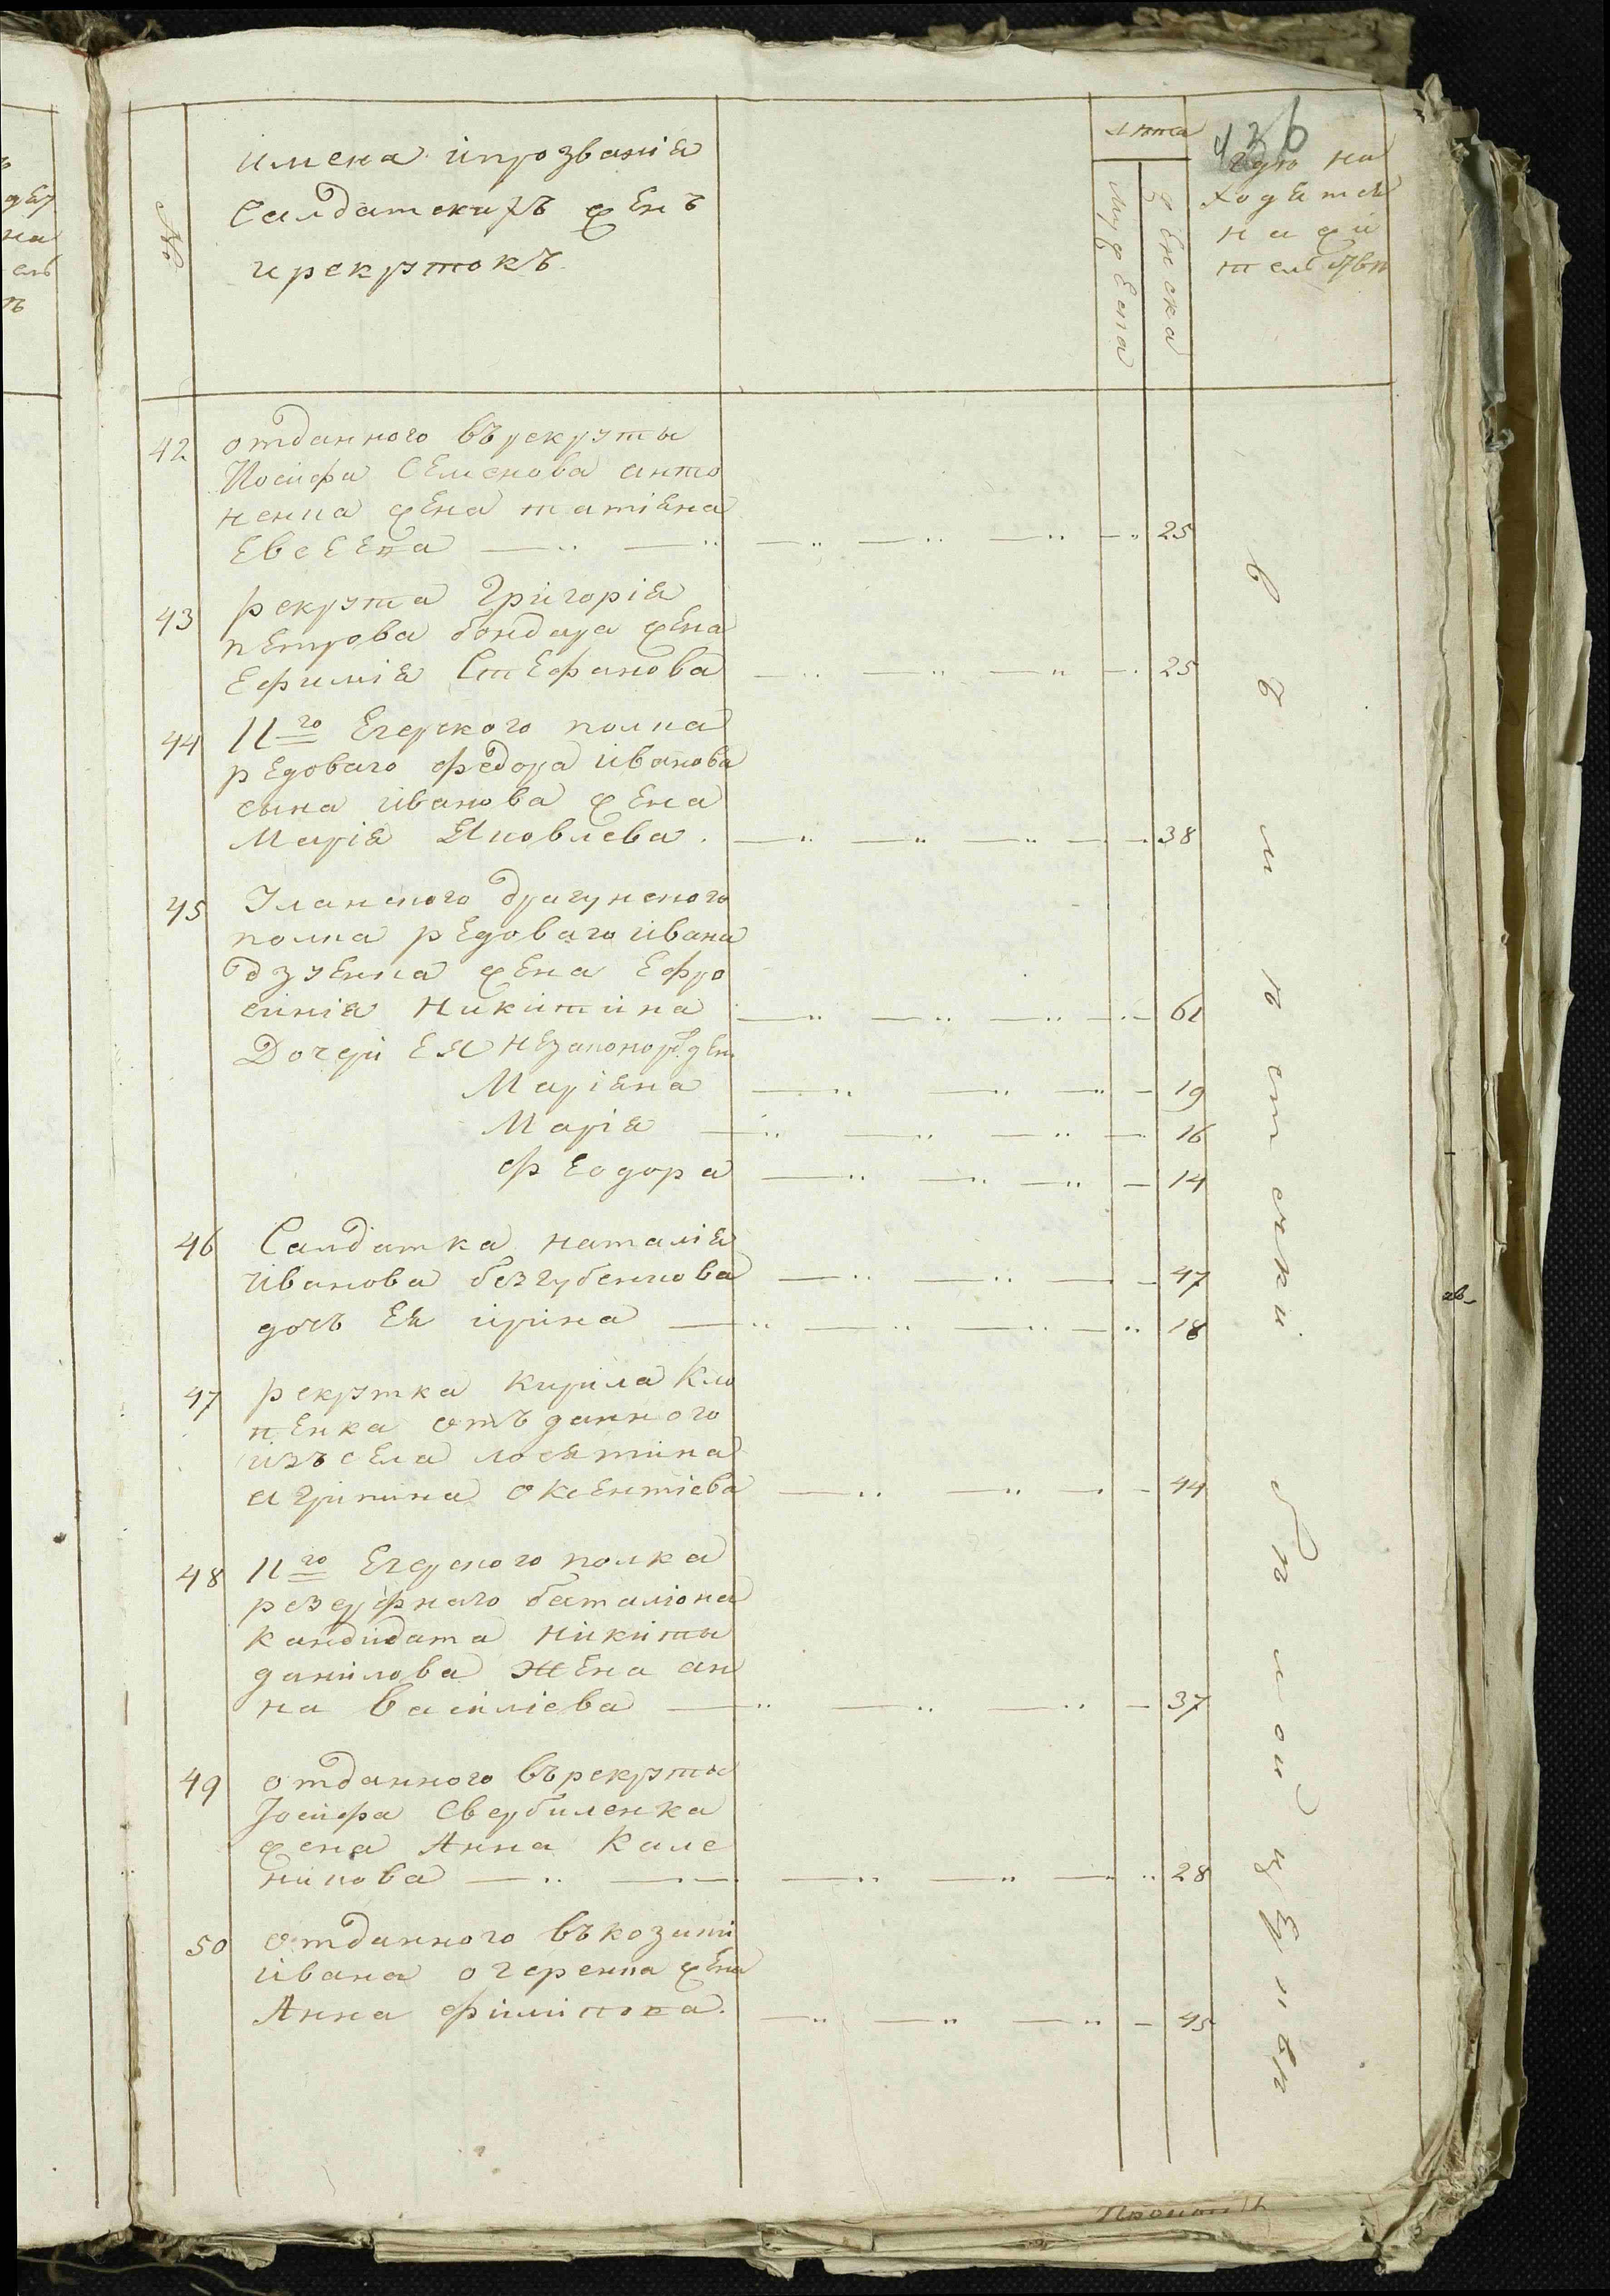 436
№
имена ипрозваніѧ
Салдатскихъ женъ
ирекрутокъ
лѣта
мужеска
женска
где на
ходѧтсѧ
нажи
тельствѣ
42 отданного въ рекруты
Иосифа Семенова анто
ненка жена татіѧна
Евсеева 25
43 рекрута Григоріѧ
петрова бондара жена
Ефиміѧ Стефанова 25
44 11го Егерского полка
рѧдоваго федора иванова
сына иванова жена
Маріѧ Яковлева 38
45 Уланского драгунского
полка рѧдоваго ивана
жена Ефро
синіѧ никитина 61
Дочери ея незаконорожден
Маріѧна 19
Маріѧ 16
феодора 14
46 Салдатка наталіѧ
иванова безгубенкова 47
дочь еѧ ирина 18
47 рекрутка кирила Кло
пенка отъданного
изъ села лосѧтина
агрипина оксентіева 44
48 11го Егерского полка
резерфнаго баталіона
кандидата никиты
данилова жена ан
на василіева 37
49 отданного въ рекруты
Іосифа Свербиленка
жена Анна Кале
никова 28
50 отданного въ козаки
ивана очеренка жена
Анна филипова 45
въ мѣстечки
бѣлой церквѣ